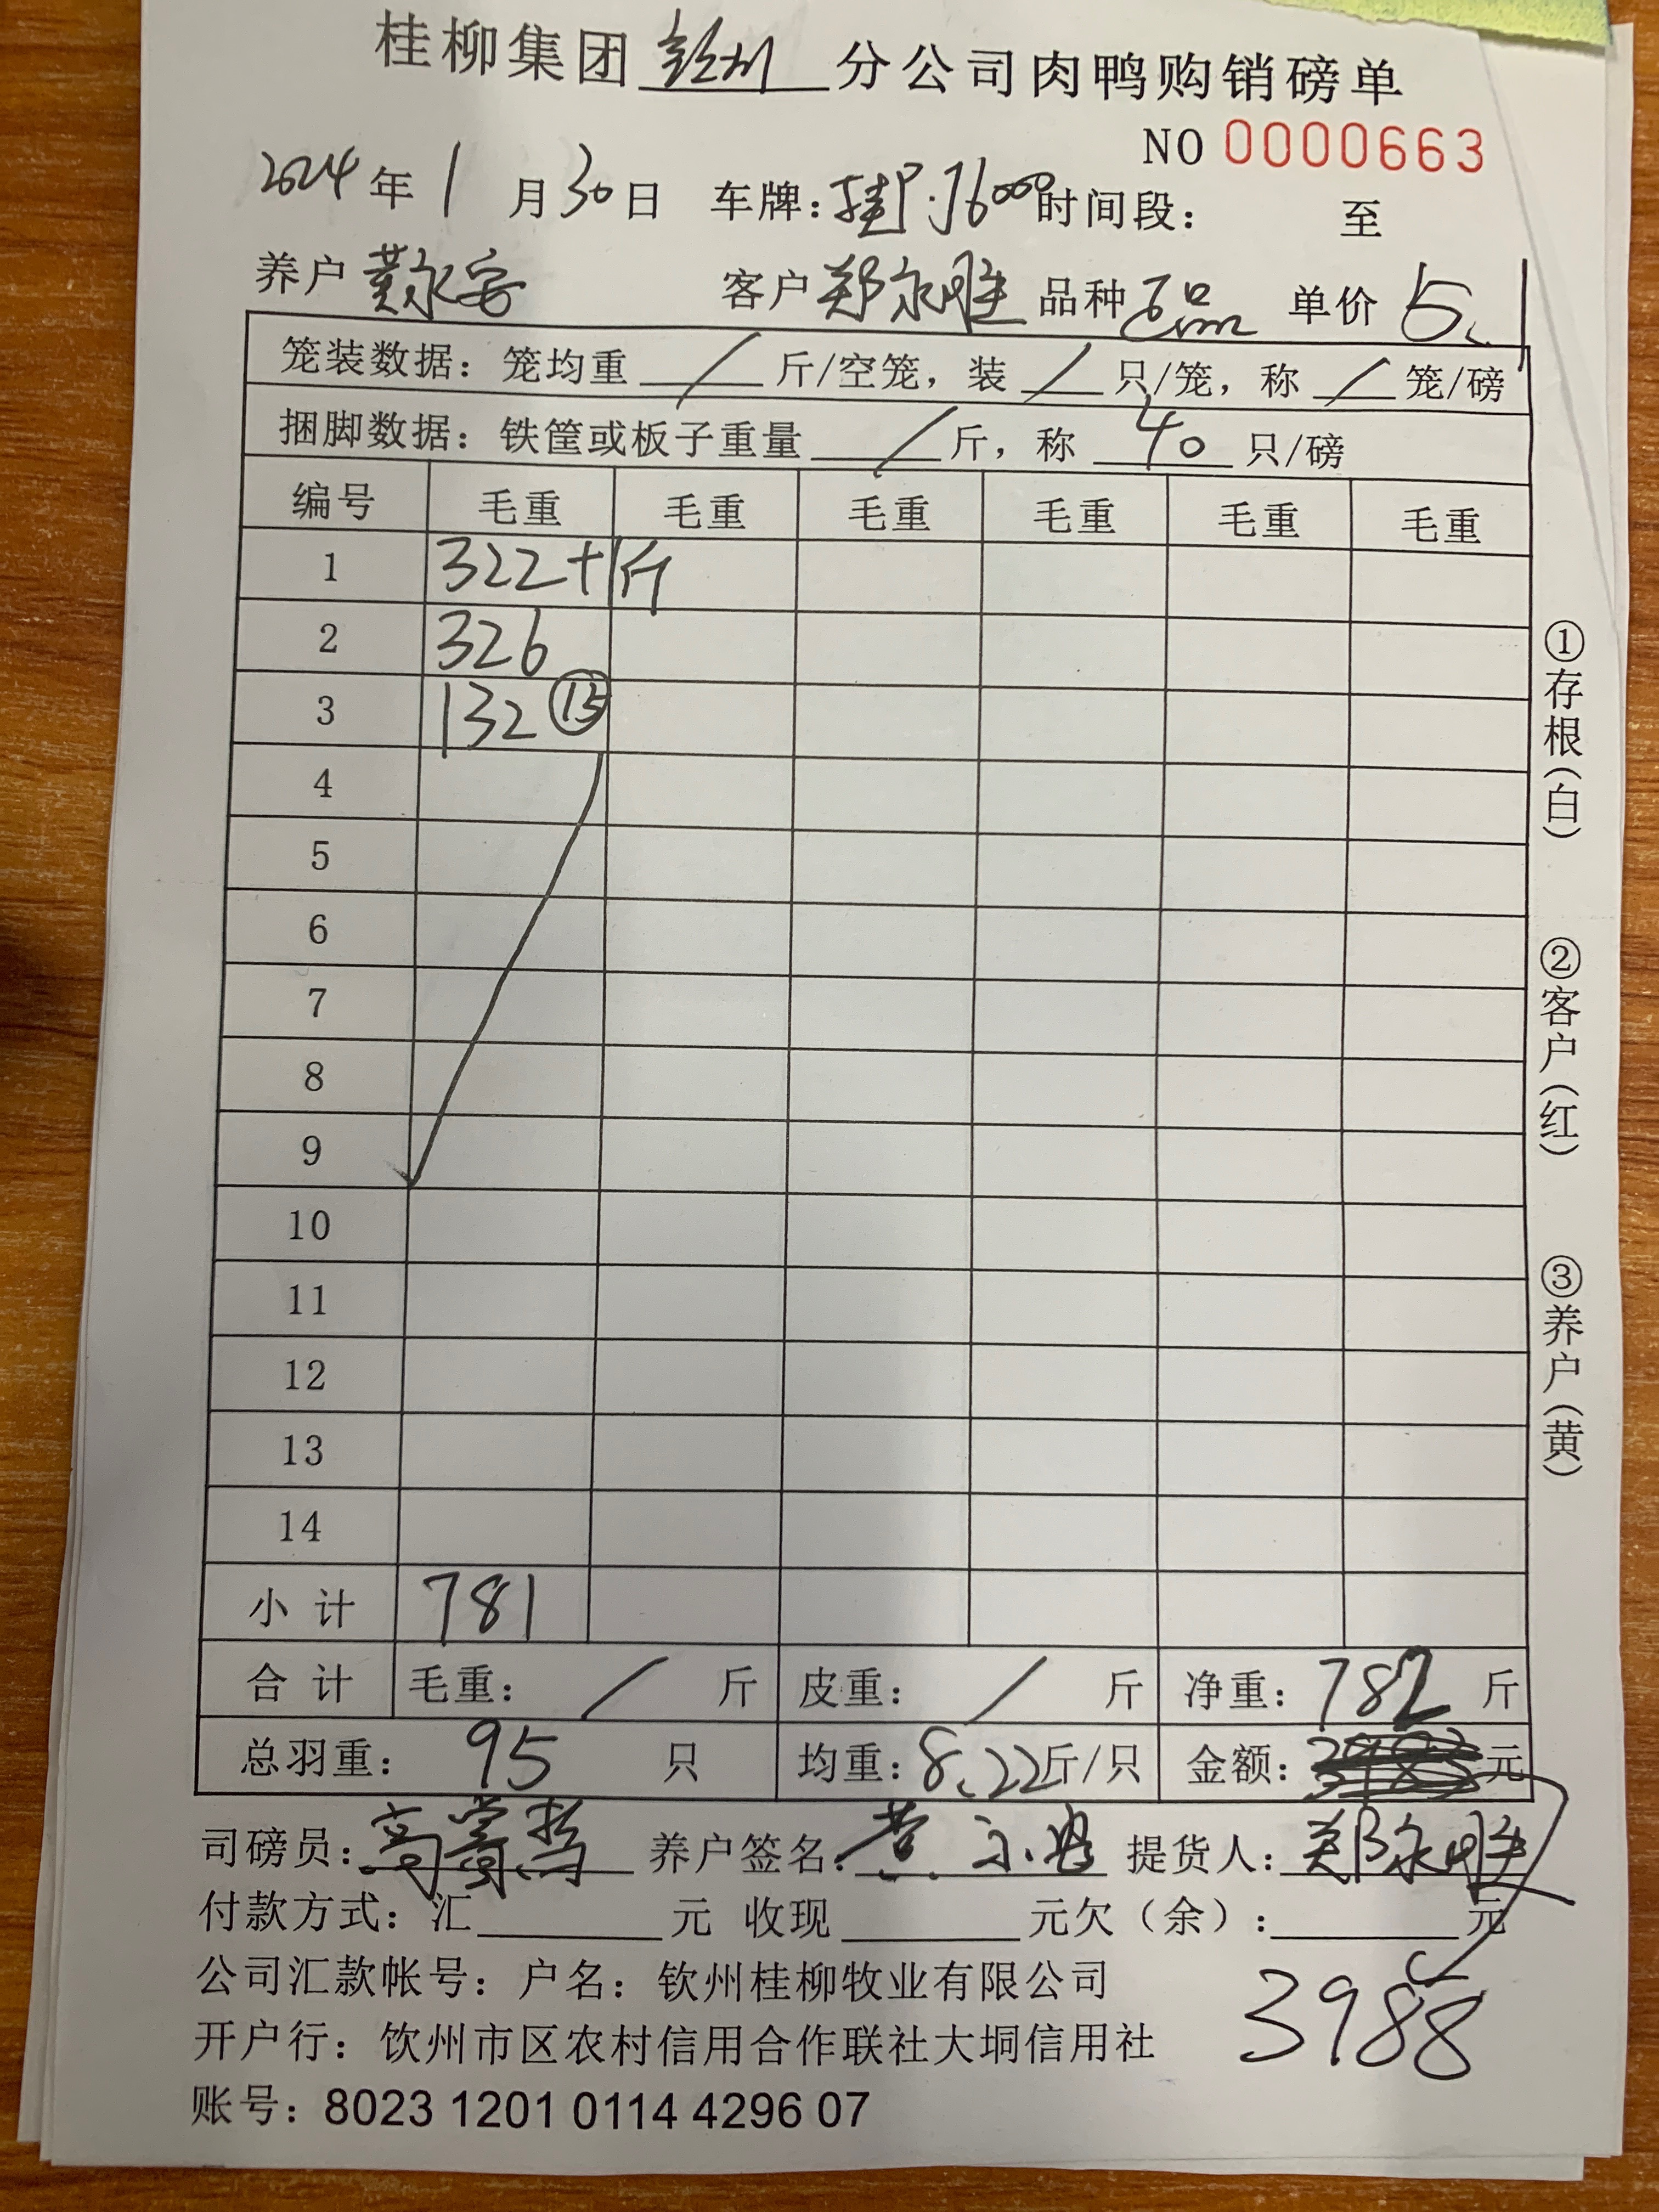 桂柳集团 钦州 分公司肉鸭购销磅单
NO 0000663
2024年1月30日 车牌:桂P·J6000时间段: 至
养户 黄永安 客户 郑永胜 品种 单价 5.1
笼装数据:笼均重 / 斤/空笼,装 / 只/笼,称 / 笼/磅
捆脚数据:铁筐或板子重量 / 斤,称 40 只/磅
编号 毛重 毛重 毛重 毛重 毛重 毛重
1 322+1斤
2 326
3 132 ⑮
4
5
6
7
8
9
10
11
12
13
14
小计 781
合计 毛重: / 斤 皮重: / 斤 净重:782 斤
总羽重: 95 只 均重:8.22斤/只 金额: 元
司磅员: 养户签名: 提货人:郑永胜
付款方式:汇 元 收现 元欠(余): 元
公司汇款帐号:户名:钦州桂柳牧业有限公司
3988
开户行:钦州市区农村信用合作联社大垌信用社
账号:8023 1201 0114 4296 07
①存根(白)
②客户(红)
③养户(黄)